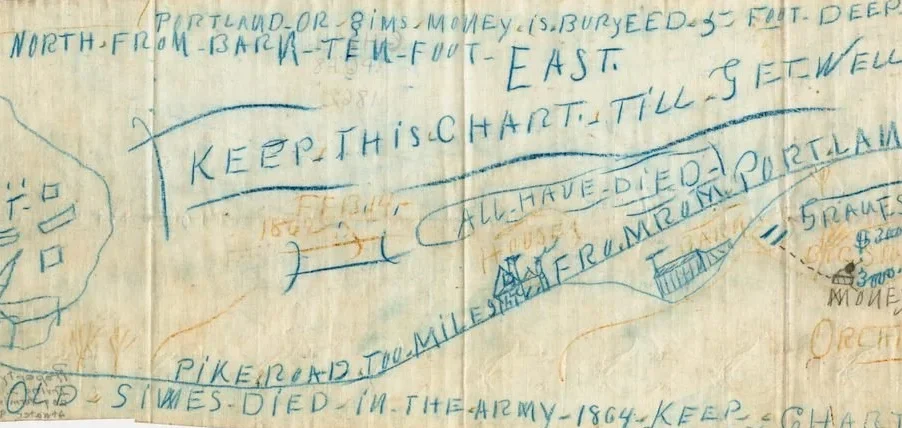 PORTLAND-OR-SIMS-MONEY.iS.BURYEED-5-FOOT-DEEP
NORTH-FROM-BARN-TEN-FOOT-
EAST.
KEEP-THiS.CHART.-TiLL-GET-WELL
ALL-HAVE-DIED-
FEB-14-
1864
HOUSES
FROM ROM. PORTLAN
BARN
5 RAUES
$200
3000
MONE
ORCH
PiKE.ROAD.TOO-MILES
OLD-SIMES-DIED-iN-THE-ARMY-1864-KEEP-CHART